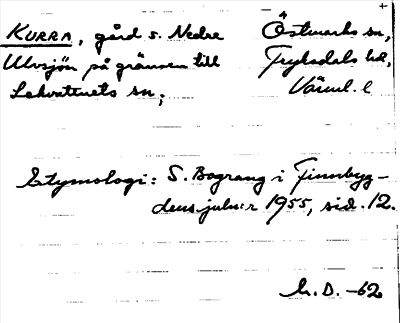 KURRA, gård s. Nedre
Ulvsjön på gränsen till
Lekvattnets sn;
Östmarks sn,
Fryksdals hd,
Värml. l
Etymologi: S. Bograng i Finnbyg-
dens julnr 1955, sid. 12.
h. D. -62